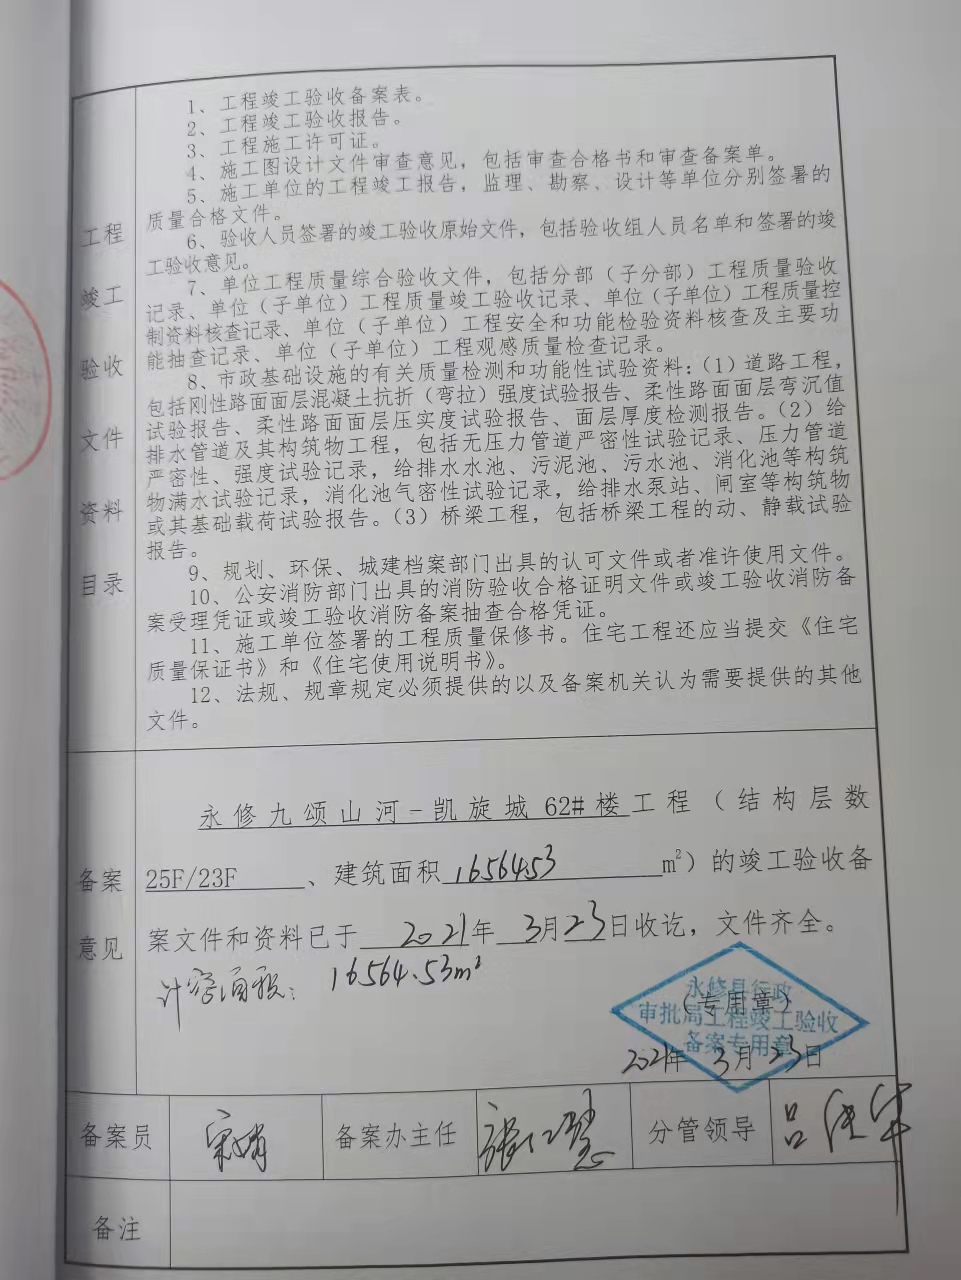 工程
竣工
验收
文件
资料
目录
1、工程竣工验收备案表。
2、工程竣工验收报告。
3、工程施工许可证。
4、施工图设计文件审查意见，包括审查合格书和审查备案单。
5、施工单位的工程竣工报告，监理、勘察、设计等单位分别签署的
质量合格文件。
6、验收人员签署的竣工验收原始文件，包括验收组人员名单和签署的竣
工验收意见。
7、单位工程质量综合验收文件，包括分部（子分部）工程质量验收
记录、单位（子单位）工程质量竣工验收记录、单位（子单位）工程质量控
制资料核查记录、单位（子单位）工程安全和功能检验资料核查及主要功
能抽查记录、单位（子单位）工程观感质量检查记录。
8、市政基础设施的有关质量检测和功能性试验资料：（1）道路工程，
包括刚性路面面层混凝土抗折（弯拉）强度试验报告、柔性路面面层弯沉值
试验报告、柔性路面面层压实度试验报告、面层厚度检测报告。（2）给
排水管道及其构筑物工程，包括无压力管道严密性试验记录、压力管道
严密性、强度试验记录，给排水水池、污泥池、污水池、消化池等构筑
物满水试验记录，消化池气密性试验记录，给排水泵站、闸室等构筑物
或其基础载荷试验报告。（3）桥梁工程，包括桥梁工程的动、静载试验
报告。
9、规划、环保、城建档案部门出具的认可文件或者准许使用文件。
10、公安消防部门出具的消防验收合格证明文件或竣工验收消防备
案受理凭证或竣工验收消防备案抽查合格凭证。
11、施工单位签署的工程质量保修书。住宅工程还应当提交《住宅
质量保证书》和《住宅使用说明书》。
12、法规、规章规定必须提供的以及备案机关认为需要提供的其他
文件。
备案
意见
永修九颂山河-凯旋城62#楼工程（结构层数
25F/23F、建筑面积16564.53m²）的竣工验收备
案文件和资料已于2021年3月23日收讫，文件齐全。
计容面积：16564.53m²
（专用章）
永修县行政
审批局工程竣工验收
备案专用章
2021年3月23日
备案员
备案办主任
分管领导
备注